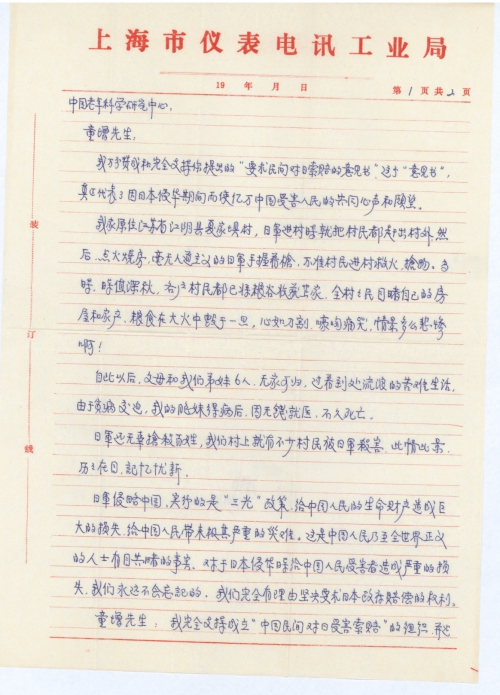 上海市仪表电讯工业局
19 年 月 日 第1页共2页
中国老年科学研究中心,
童增先生:
我万分赞成和完全支持你提出的“要求民间对日索赔的意见书”这个“意见书”,
真正代表了因日本侵华期间而使亿万中国受害人民的共同心声和愿望。
我家原住江苏省江阴县夏家埧村,日军进村时就把村民都赶出村外,然
后,点火烧房,毫无人道主义的日军手握着枪,不准村民进村救火、抢物。当
时,时值深秋,各户村民都已将粮谷收藏在家,全村村民目睹自己的房
屋和家产、粮食在大火中毁于一旦,心如刀割,嚎啕痛哭,情景多么悲惨
啊!
自此以后,父母和我们弟妹6人,无家可归,过着到处流浪的苦难生活,
由于贫病交迫,我的胞妹得病后,因无钱就医,不久死亡。
日军还无辜抢杀百姓,我们村上就有不少村民被日军殺害,此情此景,
历历在目,记忆忧新。
日军侵略中国,实行的是“三光”政策,给中国人民的生命财产造成巨
大的损失,给中国人民带来极其严重的災难。这是中国人民乃至全世界正义
的人士有目共睹的事实,对于日本侵华时给中国人民受害者造成严重的损
失,我们永远不会忘记的,我们完全有理由坚决要求日本政府赔偿的权利。
童增先生:我完全支持成立“中国民间对日受害索赔”的组织,
装
订
线